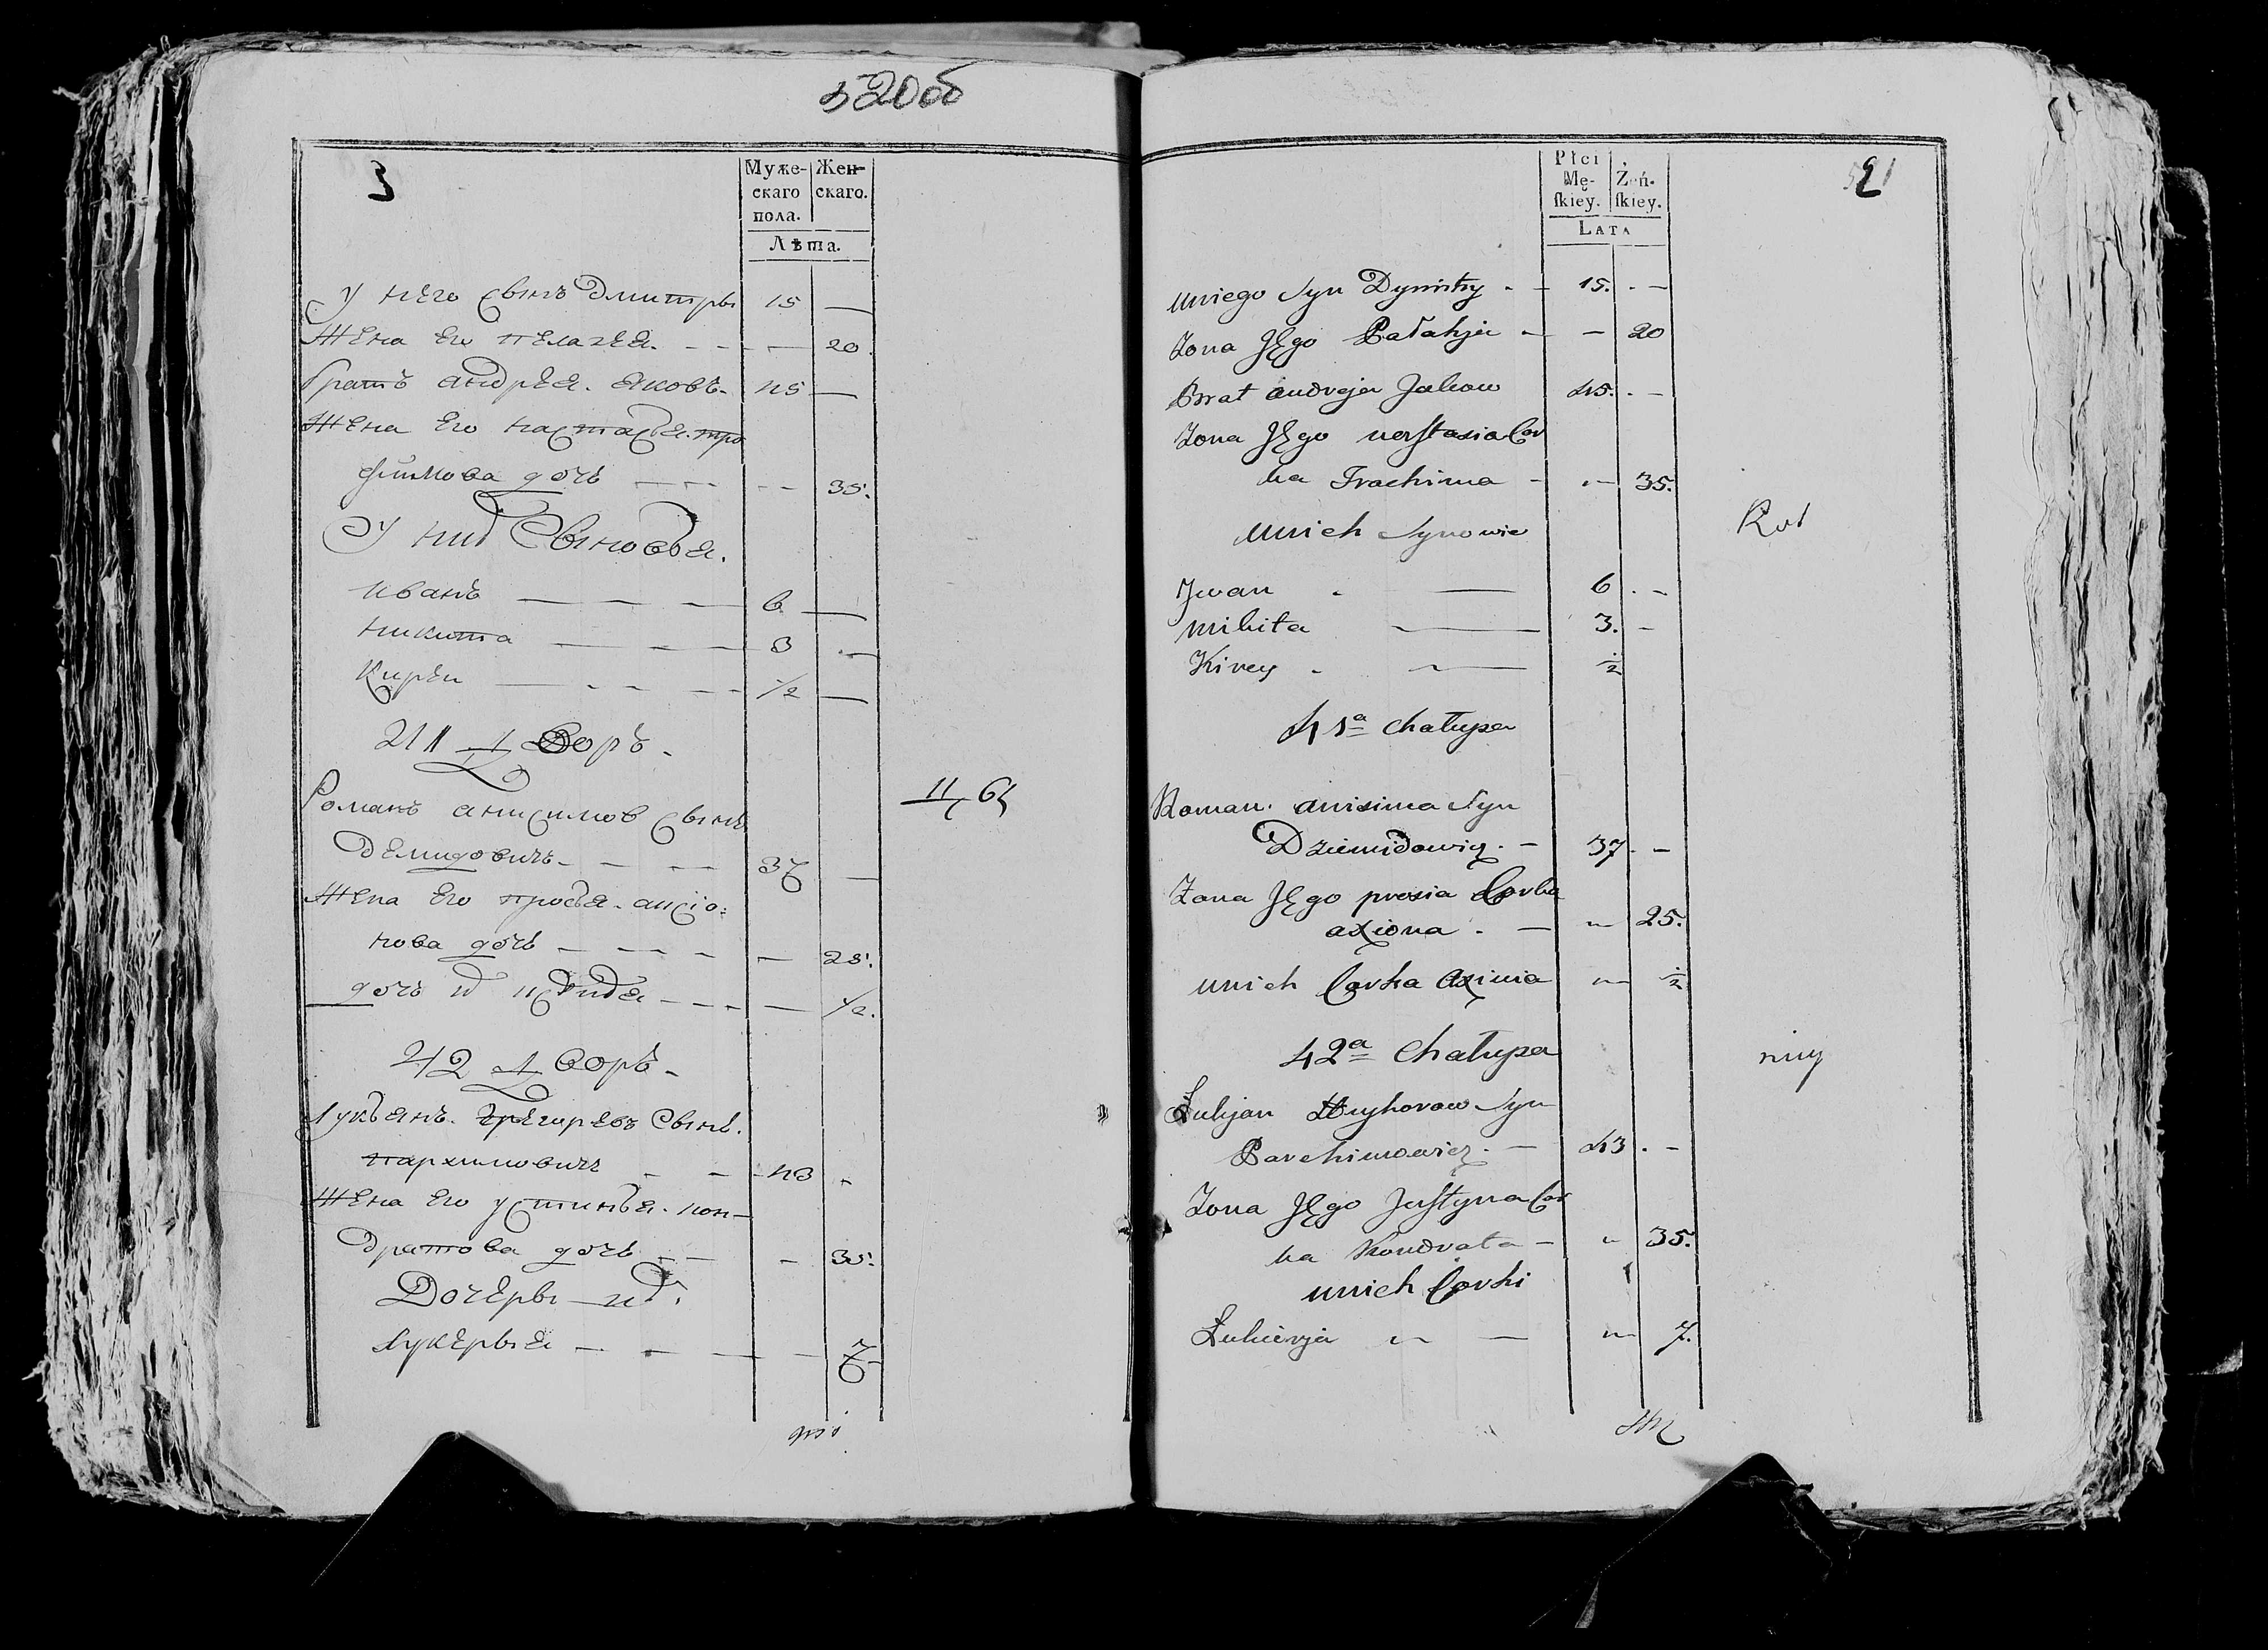 520об
3
Муже-
скаго
пола.
Жен-
скаго.
Лѣта.
У нѣго сынъ Дмитры 15 —
Жена Его пелагея. — 20.
братъ андрѣя. яковъ. 45 —
Жена Его настасья. тро
фимова дочь — 35.
У них Сыновья.
иванъ — 6 —
никита — 3 —
Кирѣи — 1/2 —
41 Дворъ.
Романъ анисимов сынъ
демидовичъ — 37 —
Жена Его просья. аксіо=
нова дочь — 25.
дочь их — 1/2.
42 Дворъ.
Лукъянъ. григорѣвъ Сынъ.
пархимовичъ — 43 -
Жена Его устинья. кон-
дратова дочь — 35.
Дочеры их.
лукерыя — 7
11
Płci
Mę-
ſkiey.
Żeń-
ſkiey.
LATA
uniego Syn Dymitry - 15. -
Zona JEgo Pałahja - 20
Brat andreja Jakow 45. -
Zona JEgo nastasia Cor
ka Trachima - 35.
unich Synowie
Jwan - 6 -
mikita — 3. -
Kirey - 1/2
41a chałupa
Roman. anisima Syn
Dziemidowicz. - 37 -
Zona JEgo prosia Corka
axiona. - 25.
unich Corka Axinia 1/2
42a Chałupa
Łukjan Hryhorow Syn
Parchimowicz. - 43 -
Zona JEgo Justyna Cor
ka Kondrata - 35.
unich Corki
Łukierja — 7.